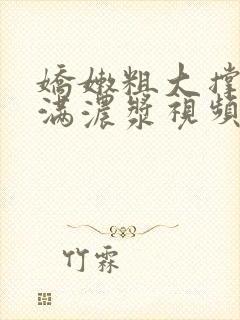 嬌嫩粗大撐
滿濃漿視頻
竹霖